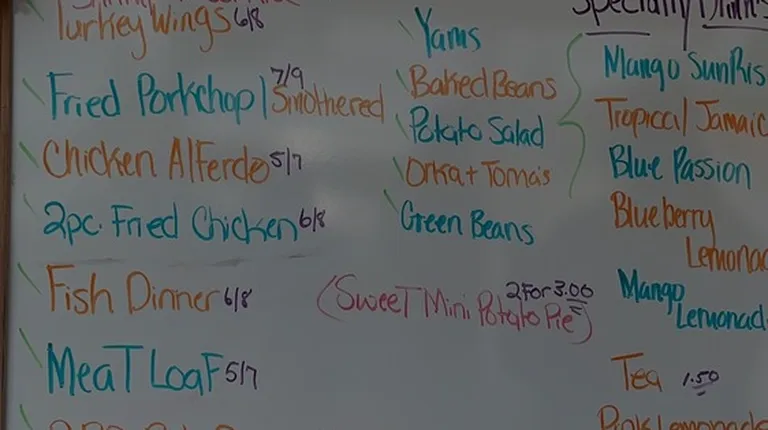 Turkey Wings 6/8
Fried Porkchop / Smothered 7/9
Chicken Alferdo 5/7
2pc. Fried Chicken 6/8
Fish Dinner 6/8
Meat Loaf 5/7
Yams
Baked Beans
Potato Salad
Orka + Toma's
Green Beans
(Sweet Mini Potato Pie) 2 For 3.00
Specialty Drinks
Mango SunRis
Tropical Jamaic
Blue Passion
Blueberry
Lemonad
Mango
Lemonad
Tea 1.50
Pink Lemonade